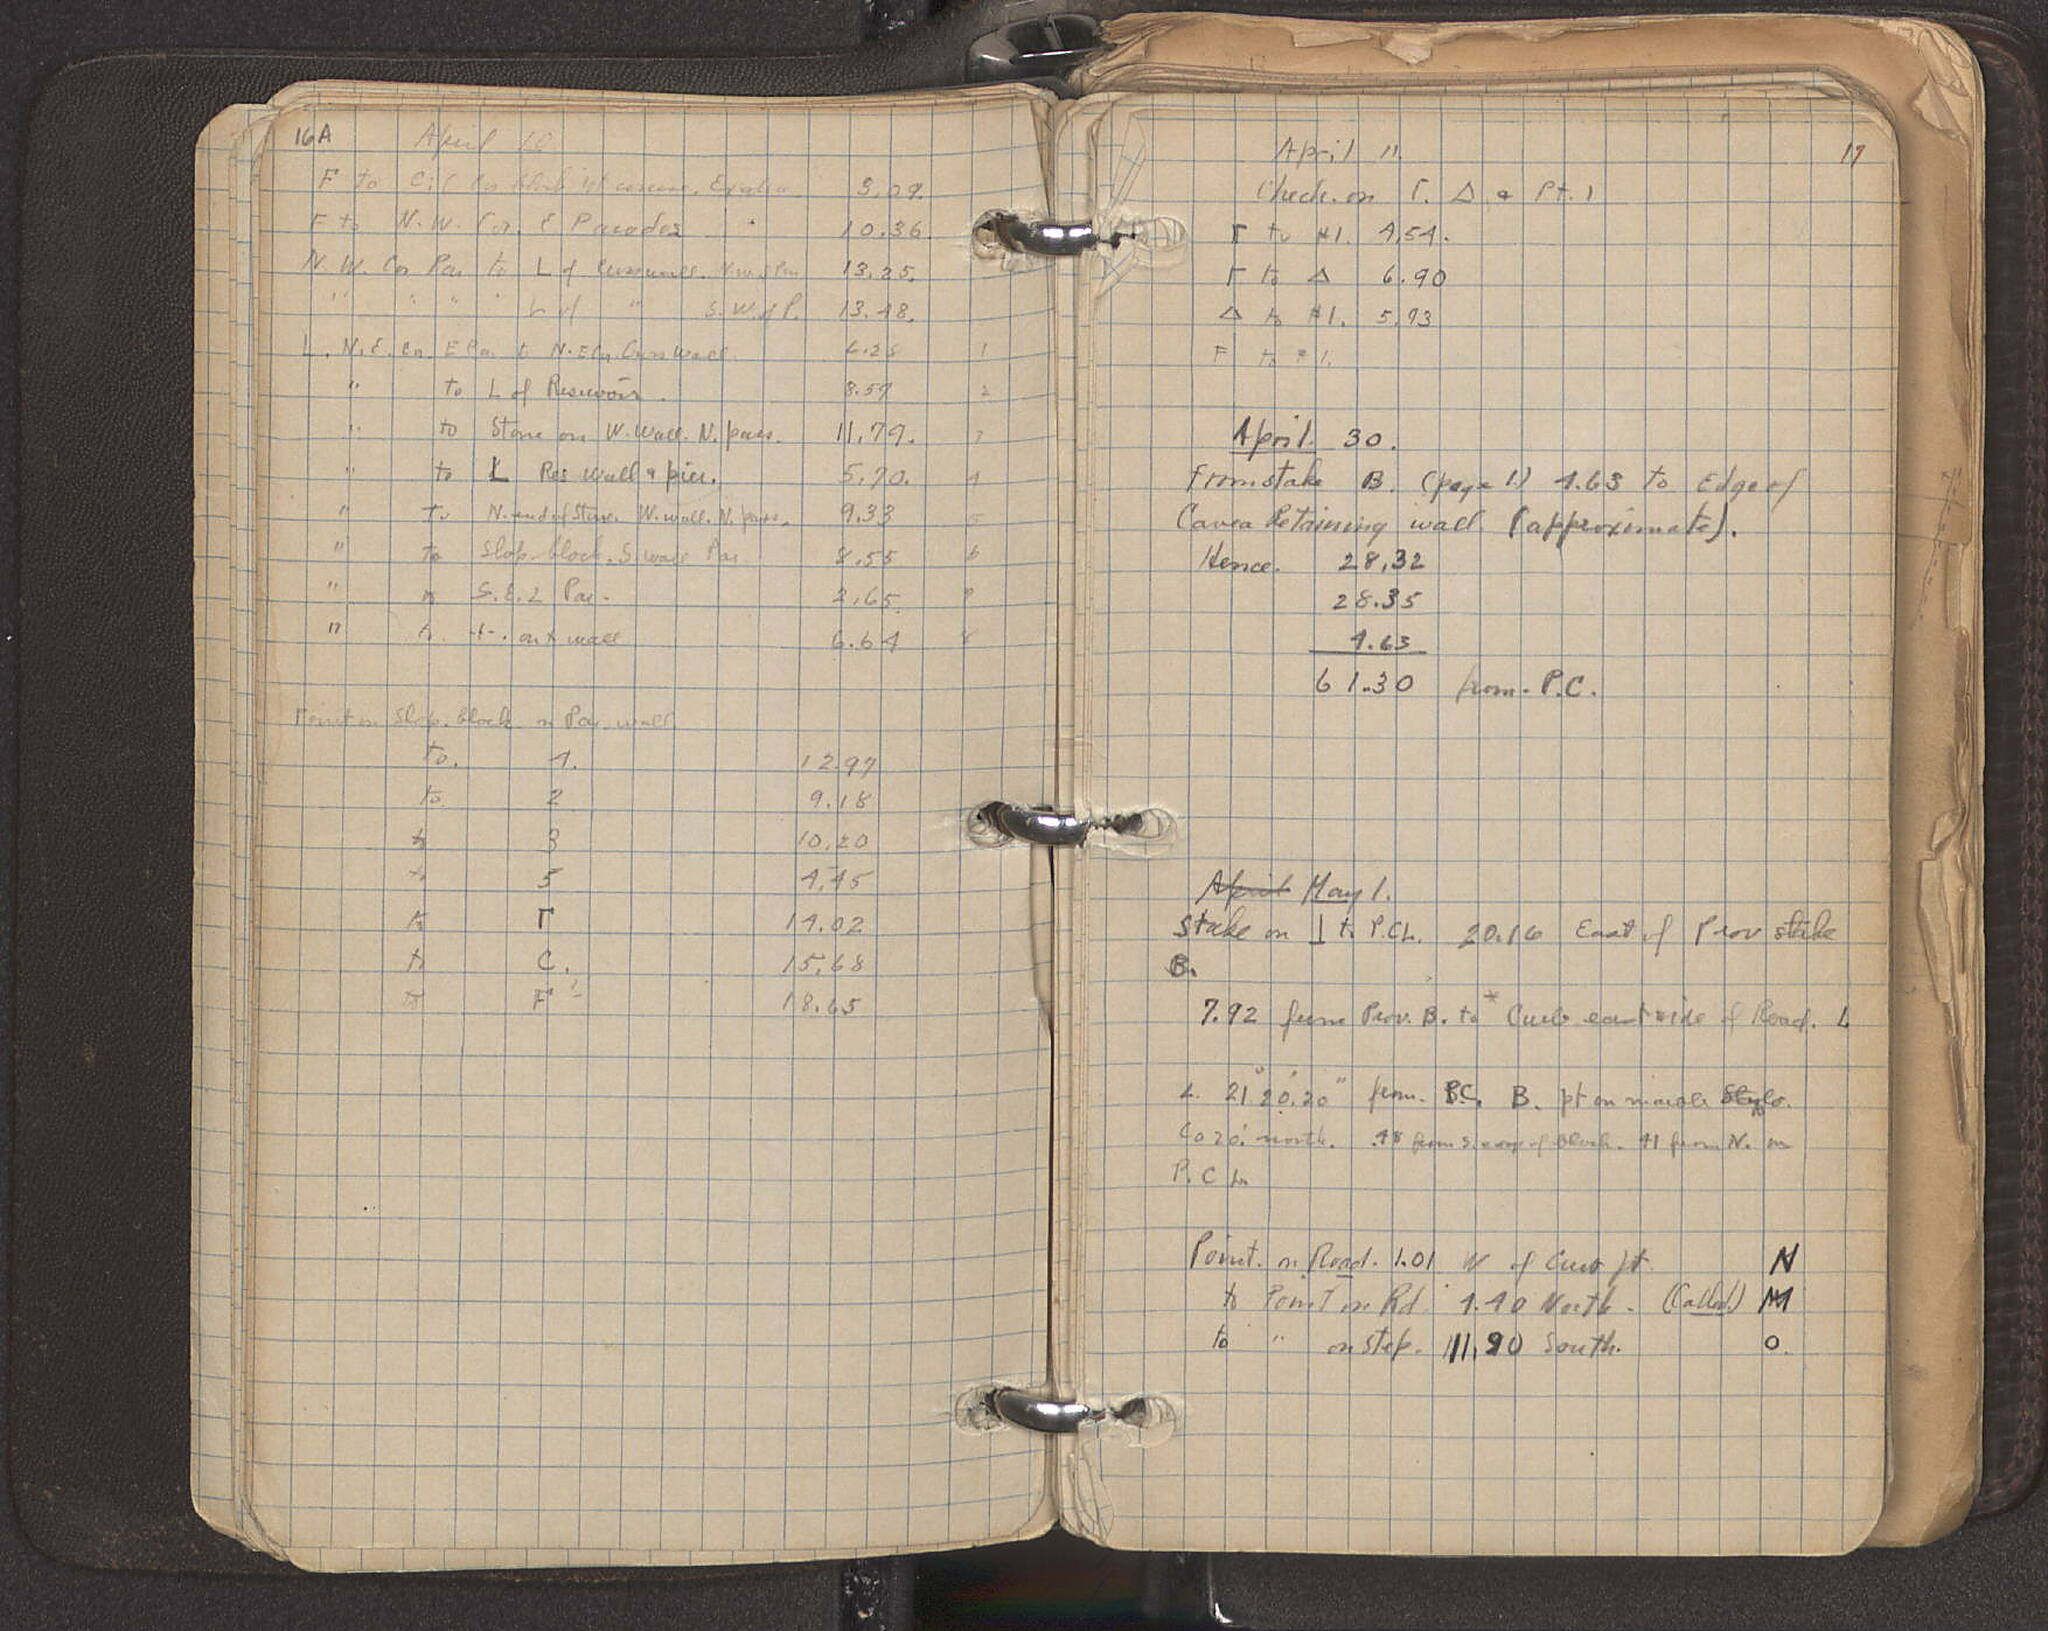 16A April 10
F to 3.09.
F to N.W. Cor. E Parados " 10.36.
N.W. Cor Par to L of N.W. of Par 13.25.
" " " " L of " S.W. of P. 13.48.
L. N.E. Cn. E Par. to N.E. Cn. Wall. 6.28 1
" to L of Reservoir. 8.59 2
" to Stone on W. Wall. N. pass. 11.79. 3
" to L Res wall & pier. 5.70. 4
" to N. end of Stone. W. wall. N. pass. 9.33 5
" to Slop. block. S wall Par. 8.55 6
" to S.E. L Par. 2.65. 7
" to + on + wall 6.64 8
Point on Slop. block on Par. wall
to. 4. 12.97
to 2 9.18
to 3 10.20
to 5 4.45
to Γ 14.02
to C. 15.68
to F 18.65
April 11. 17
Check on Γ. Δ & Pt. 1
Γ to #1. 4.54.
Γ to Δ 6.90
Δ to #1. 5.93
F to #1.
April. 30.
From stake B. (page 1.) 4.63 to Edge of
Cavea Retaining wall. (approximate).
Hence. 28.32
28.35
4.63
61.30 from P.C.
April May 1.
Stake on ⊥ to P.CL. 20.16 East of Prov stake
B.
7.92 from Prov. B. to * Curb east side of Road. L
L. 21° 20' 20" from. P.C. B. pt on marble Stylo.
north. .48 from S. edge of block. 41 from N. on
P.C L.
Point. on Road. 1.01 W of Curb pt. N
to Point on Rd. 4.40 North. (Called) M
to " on step. 111.90 South. O.